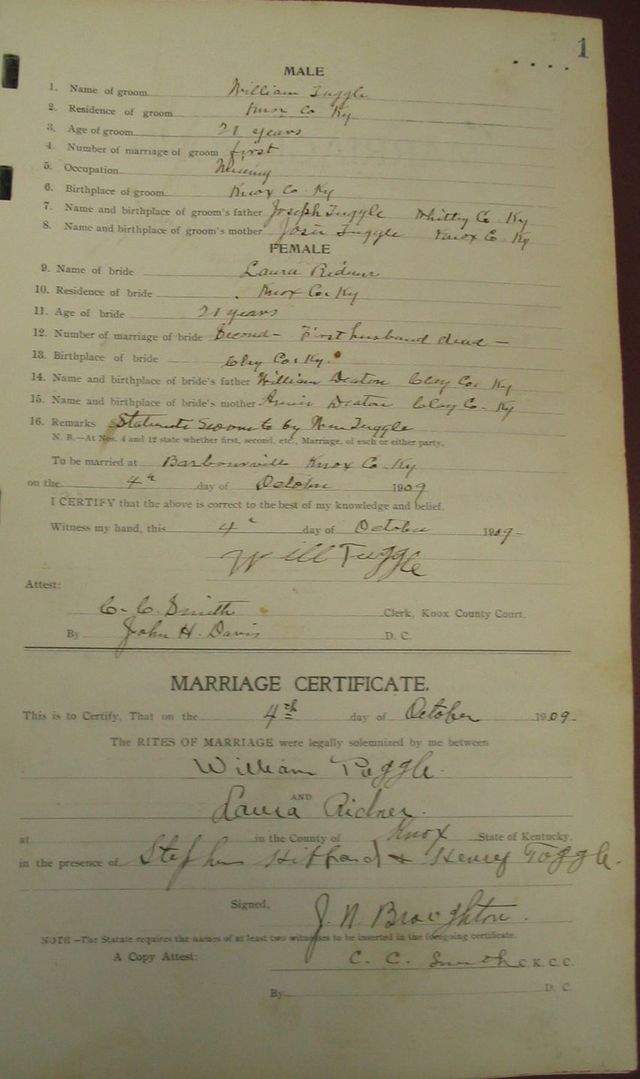 1
MALE
1. Name of groom William Tuggle
2. Residence of groom Knox Co Ky
3. Age of groom 21 years
4. Number of marriage of groom first
5. Occupation
6. Birthplace of groom Knox Co Ky
7. Name and birthplace of groom's father Joseph Tuggle Whitley Co Ky
8. Name and birthplace of groom's mother Josie Tuggle Knox Co Ky
FEMALE
9. Name of bride Laura Ridner
10. Residence of bride Knox Co. Ky
11. Age of bride 21 years
12. Number of marriage of bride Second - First husband dead -
13. Birthplace of bride Clay Co. Ky.
14. Name and birthplace of bride's father William Deaton Clay Co. Ky
15. Name and birthplace of bride's mother Deaton Clay Co. Ky
16. Remarks Statements Sworn to by Wm Tuggle
N. B.—At Nos. 4 and 12 state whether first, second, etc., Marriage, of each or either party.
To be married at Barbourville Knox Co Ky
on the 4" day of October 1909
I CERTIFY that the above is correct to the best of my knowledge and belief.
Witness my hand, this 4" day of October 1909-
Will Tuggle
Attest:
C. C. Smith Clerk, Knox County Court.
By John H. Davis D. C.
MARRIAGE CERTIFICATE.
This is to Certify, That on the 4th day of October 1909.
The RITES OF MARRIAGE were legally solemnized by me between
William Tuggle
AND
Laura Ridner.
at in the County of Knox State of Kentucky.
in the presence of Stephen Hibbard & Henry Toggle.
Signed, J. N. Broughton.
NOTE—The Statute requires the names of at least two witnesses to be inserted in the foregoing certificate.
A Copy Attest: C. C. Smith C. K. C. C.
By D. C.